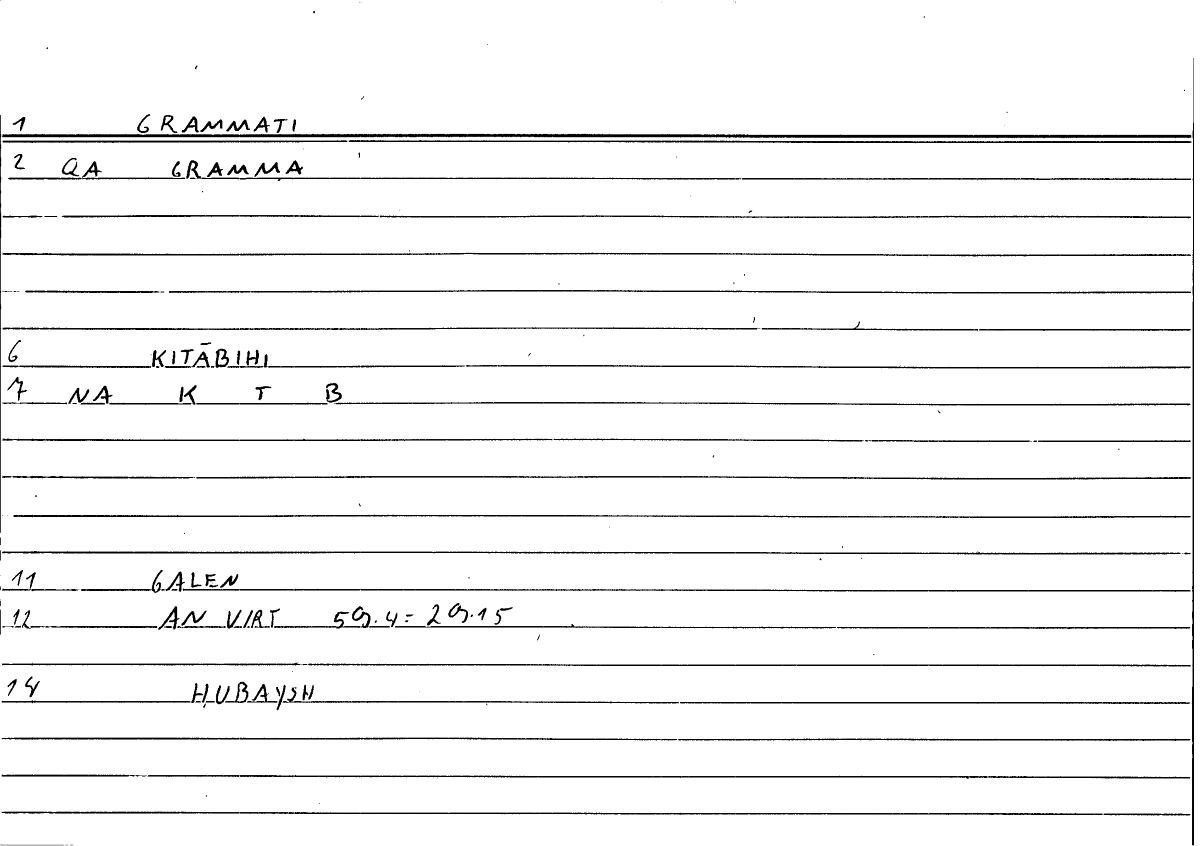 1 GRAMMATI
2 QA GRAMMA
6 KITĀBIHI
7 NA K T B
11 GALEN
12 AN VIRT 59.4=29.15
14 ḤUBAYSH